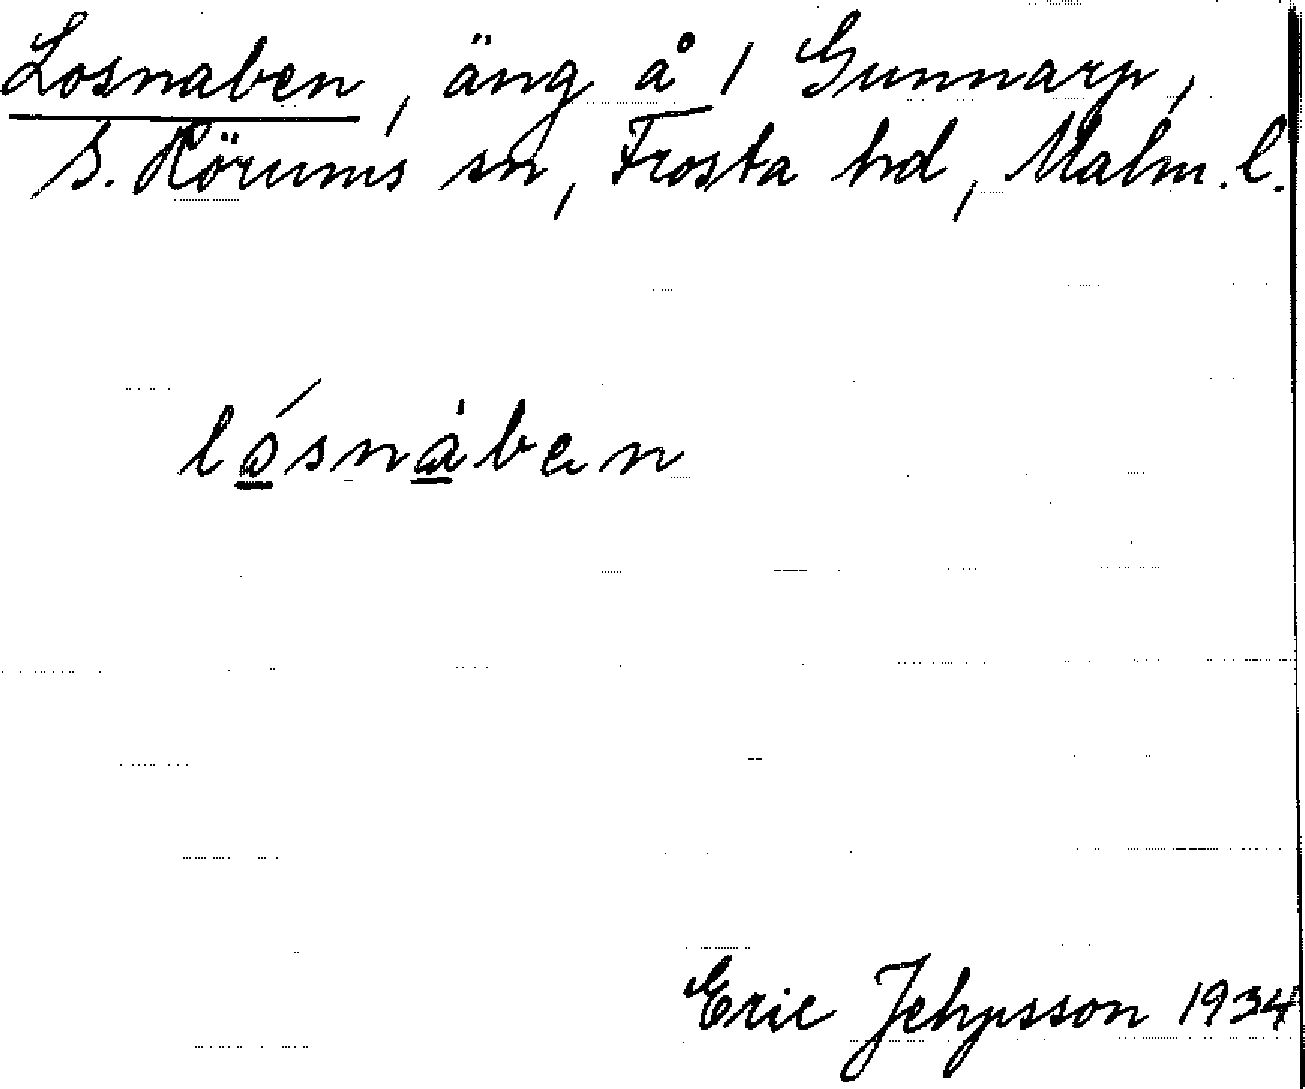 Losnaben, äng å 1 Gunnarp,
S. Rörums sn, Frosta hd, Malm. l.
lósnȧben
Eric Jehpsson 1934